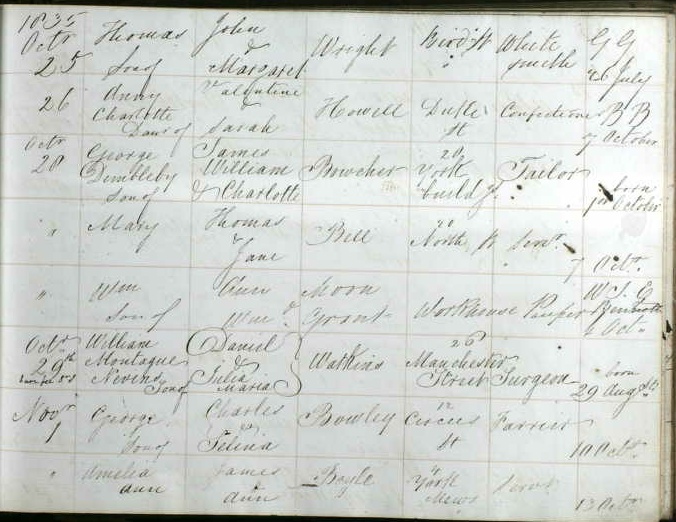 1835
Octr Thomas John Wright Bird St White G G
25 Son of & Margaret smith 26 July
26 Anny Valentine
Charlotte & Howell Duke Confectioner B B
Daur of Sarah St 7 October
Octr George James 20
28 Dimbleby William Bowcher York Tailor born
Son of & Charlotte build gs 1st October
" Mary Thomas Bell North St Servt
& Jane 7 Octr
" Wm Ann Moon W. J. G
Son of Wm & Grant Workhouse Pauper
Octr
Octr William Daniel 26
29th Montague & Watkins Manchester born
Nevins Son of Julia Maria Street Surgeon 29 Augst
Novr George Charles Bowley 12 Circus Farrier
1 Son of & Selina St 10 Octr
" Amelia James Boyle York Servt
Ann Ann Mews 13 Octr